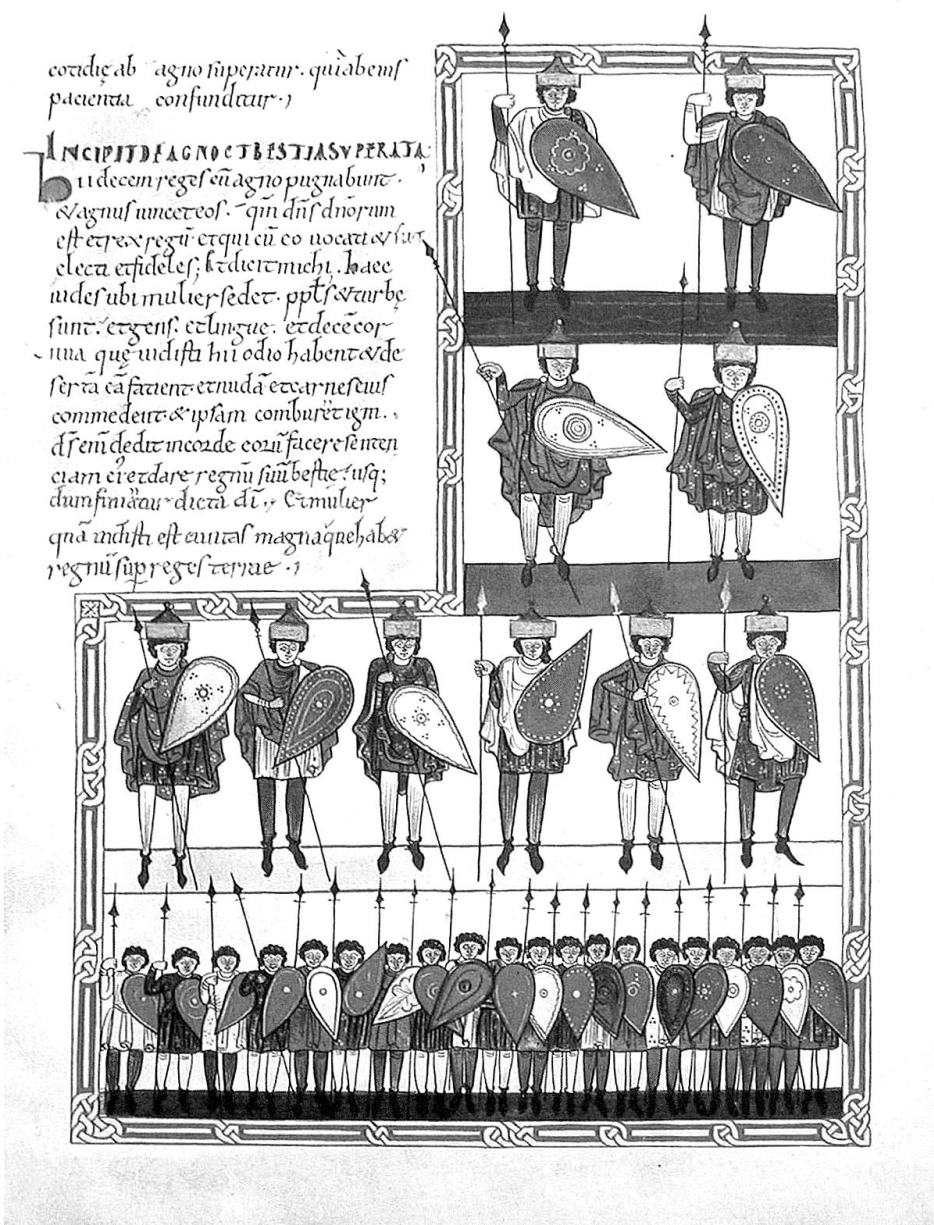 cotidię ab agno superatur. quia bemis
pacientia confunditur.
INCIPIT DE AGNO ET BESTIA SVPERATA
Hii decem reges cū agno pugnabunt.
& agnus uincet eos. qm̄ dn̄s dn̄orum
est et rex regū et qui cū eo uocati & sunt
electi et fideles; Et dicit michi. haec
uides ubi mulier sedet. ppl̄s & turbę
sunt. et gens. et lingue. et decē cor
nua quę uidisti hii odio habent & de
sertā eā facient et nudā et carnes eius
commedent & ipsam comburēt igni.
ds̄ enī dedit in corde eorū facere senten
ciam ei et dare regnū suū bestie usq;
dum finiatur dicta dī. Et mulier
quā uidisti est ciuitas magna que hab&
regnū sup reges terrae.